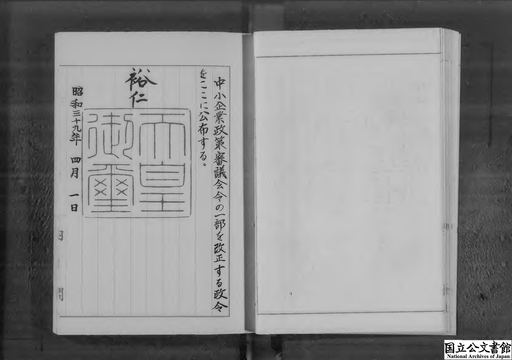 中小企業政策審議会令の一部を改正する政令
をここに公布する。
裕仁
天皇
御璽
昭和三十九年 四月 一日
国立公文書館
National Archives of Japan